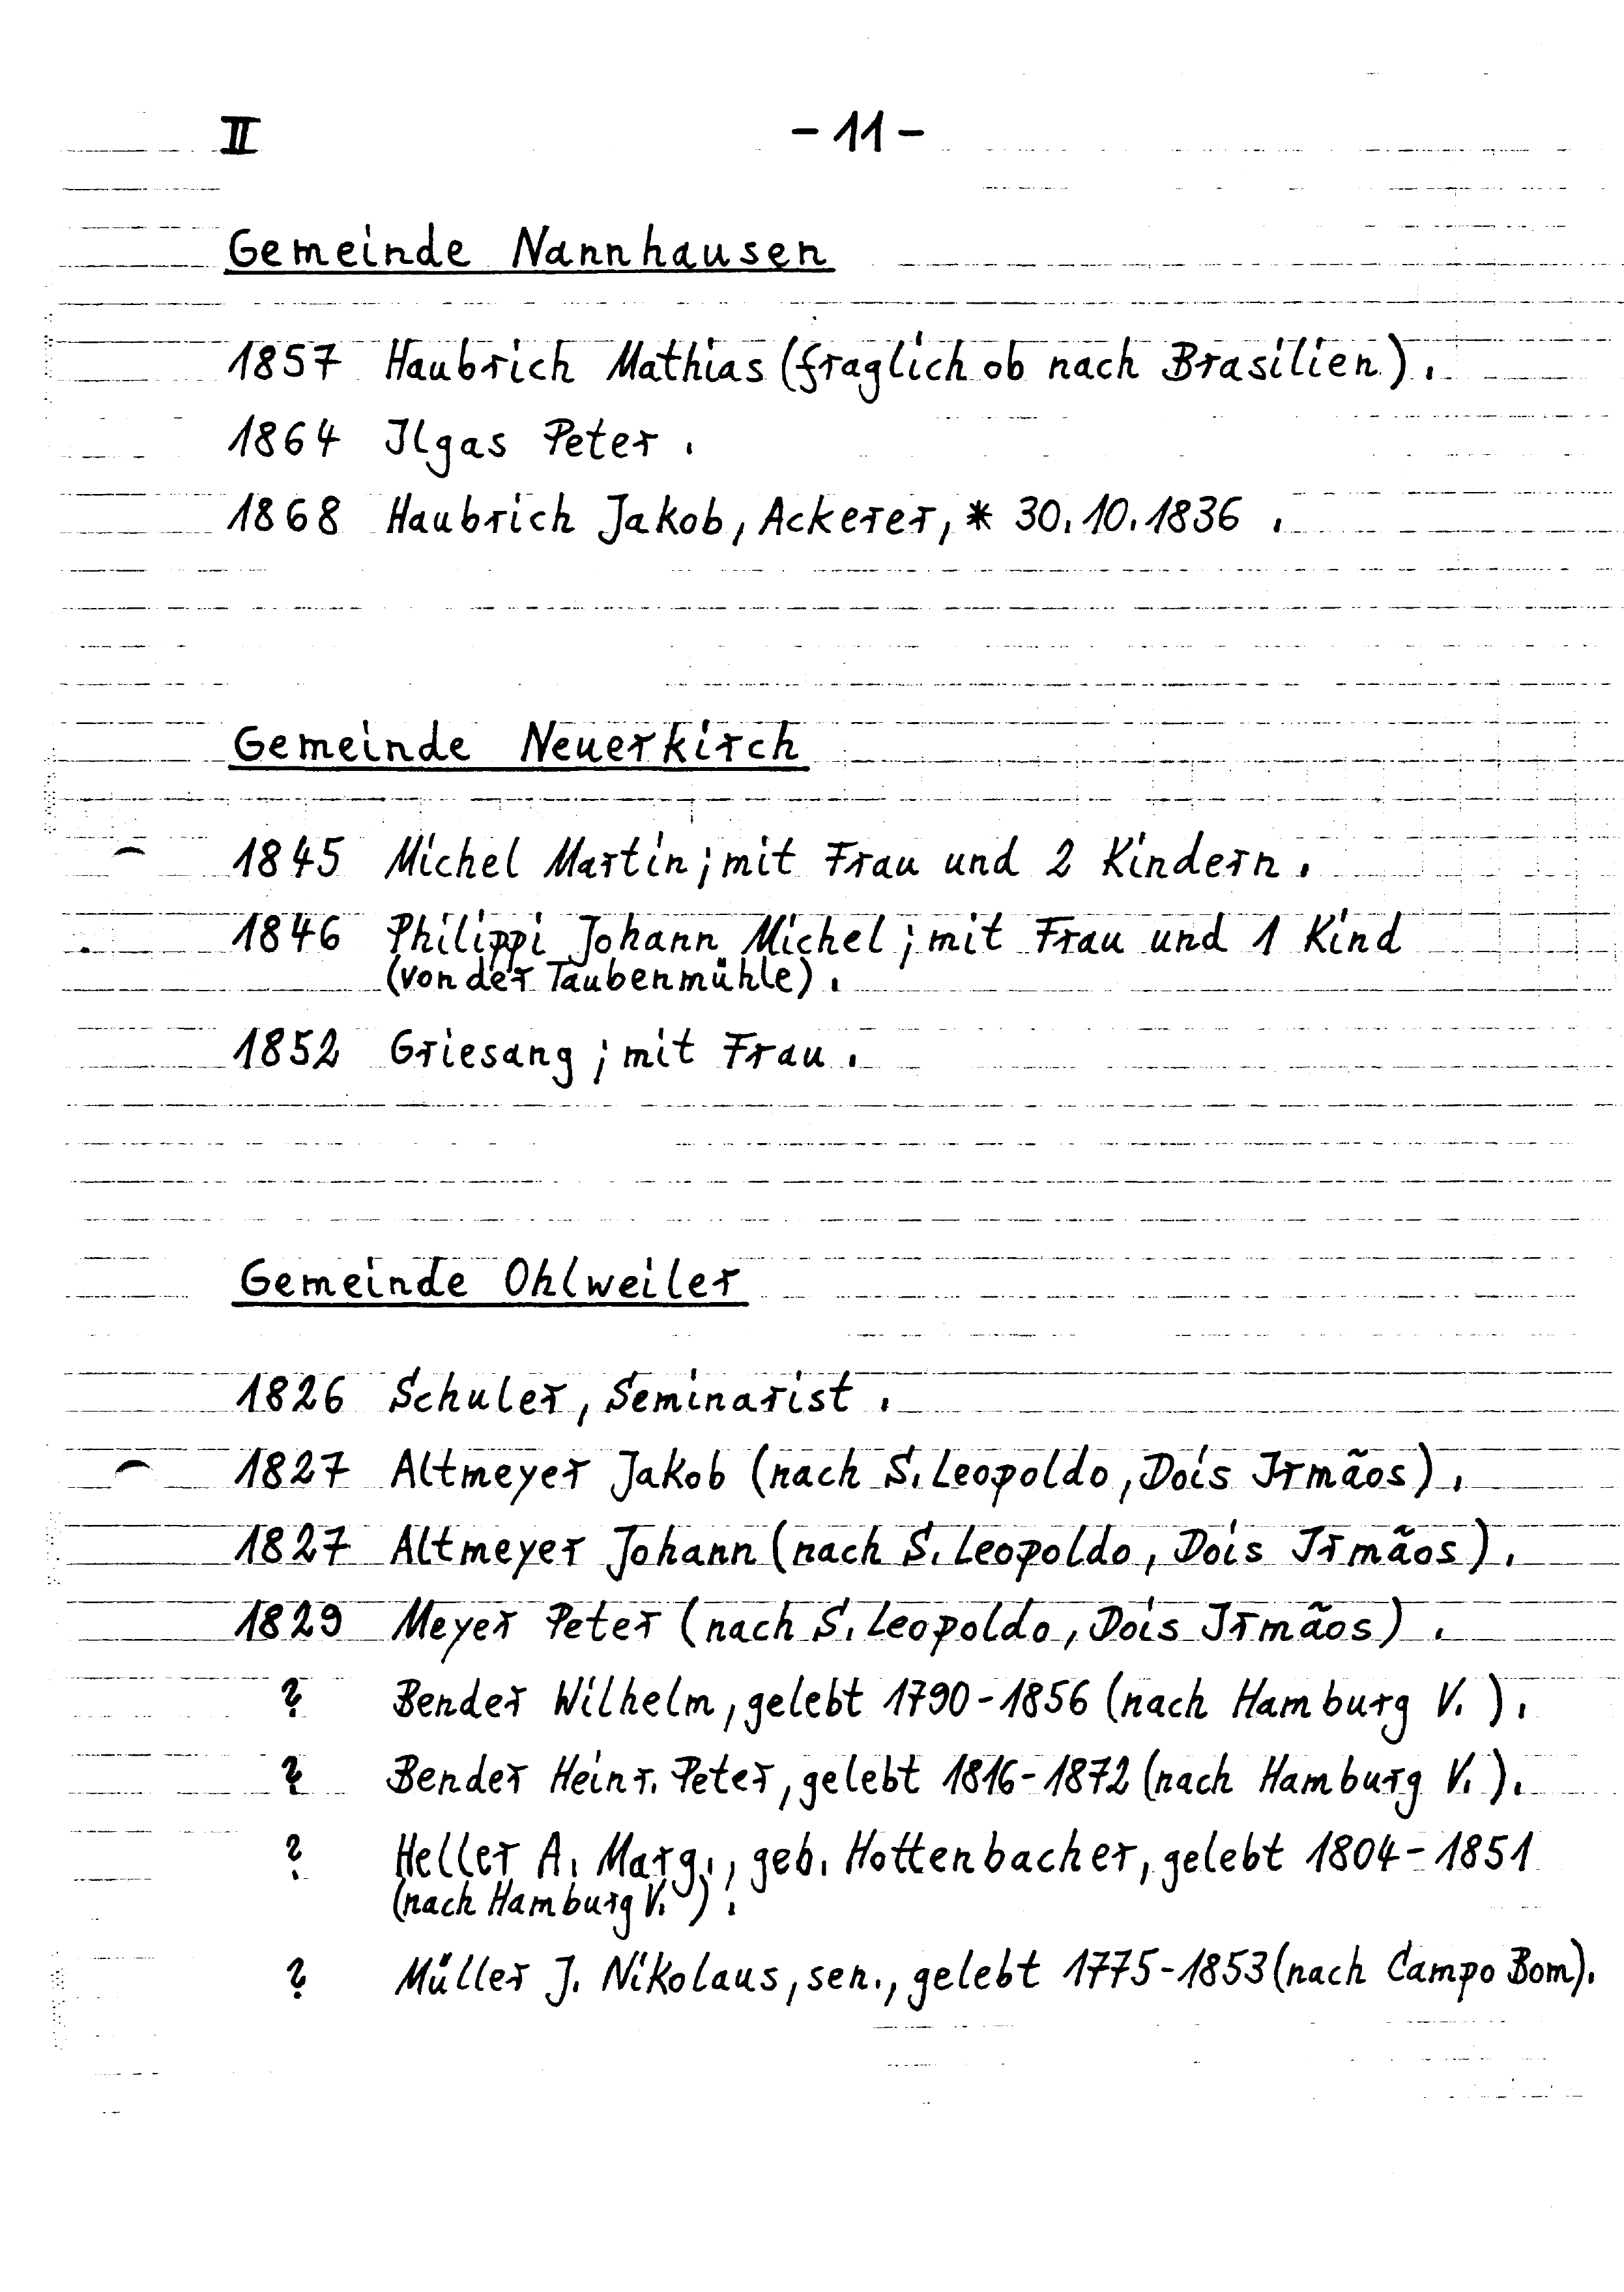 II
- 11 -
Gemeinde Nannhausen
1857 Haubrich Mathias (fraglich ob nach Brasilien).
1864 Ilgas Peter.
1868 Haubrich Jakob, Ackerer, * 30.10.1836.
Gemeinde Neuerkirch
1845 Michel Martin; mit Frau und 2 Kindern.
1846 Philippi Johann Michel; mit Frau und 1 Kind
(von der Taubenmühle).
1852 Griesang; mit Frau.
Gemeinde Ohlweiler
1826 Schuler, Seminarist.
1827 Altmeyer Jakob (nach S. Leopoldo, Dois Irmãos).
1827 Altmeyer Johann (nach S. Leopoldo, Dois Irmãos).
1829 Meyer Peter (nach S. Leopoldo, Dois Irmãos).
? Bender Wilhelm, gelebt 1790-1856 (nach Hamburg V.).
? Bender Heinr. Peter, gelebt 1816-1872 (nach Hamburg V.).
? Heller A. Marg., geb. Hottenbacher, gelebt 1804-1851
(nach Hamburg V.).
? Müller J. Nikolaus, sen., gelebt 1775-1853 (nach Campo Bom).